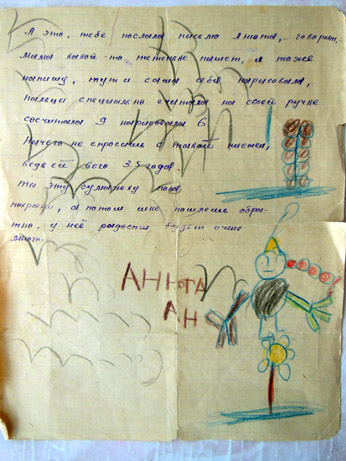 А это, тебе послала письмо Анюта, говорит,
Мама какой-то тетеньке пишет, я тоже
напишу, тут и сама себя нарисовала,
пальцы специально считала на своей ручке
сосчитала 5 нарисовала 6.
Ничего не спросишь с такой писаки,
ведь ей всего 3.5 годов
ты эту бумажку пока
, а потом мне пошлешь обра-
тно, у неё радости будет очень
много.
АНЮТА
АН